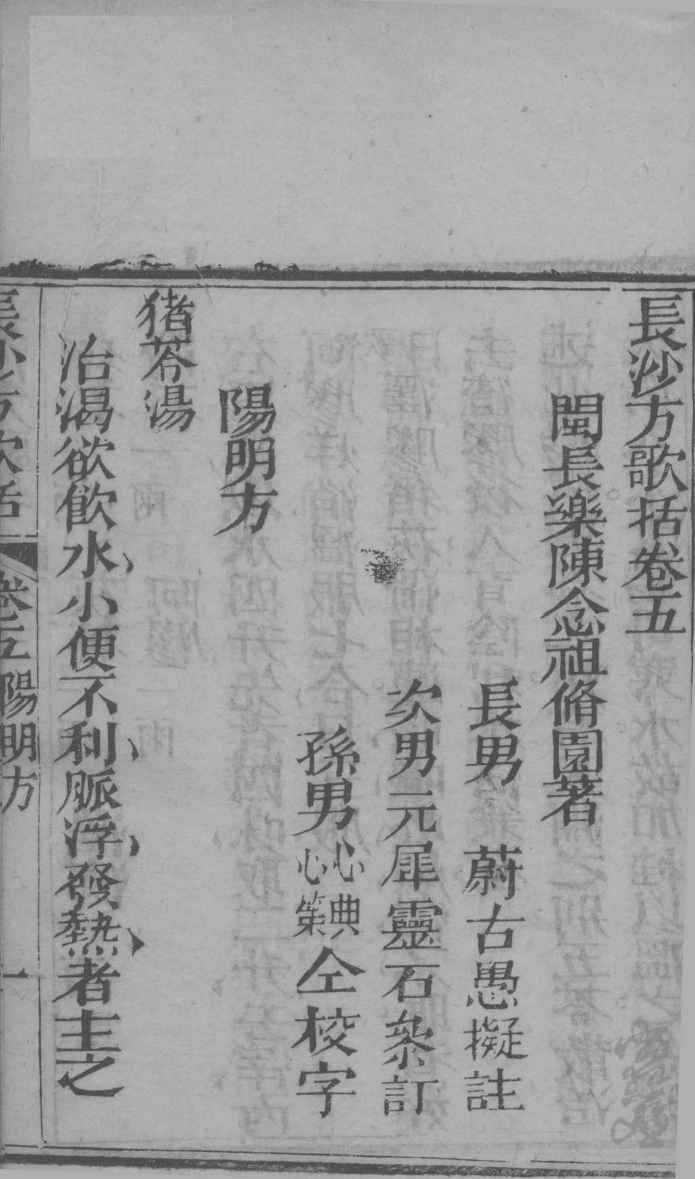 長沙方歌括卷五
閩長樂陳念祖脩園著
長男 蔚古愚擬註
次男元犀靈石叅訂
孫男心典心䇿仝校字
陽明方
猪苓湯
治渴欲飲水小便不利脈浮發熱者主之
長沙方歌括 卷五 陽明方 一